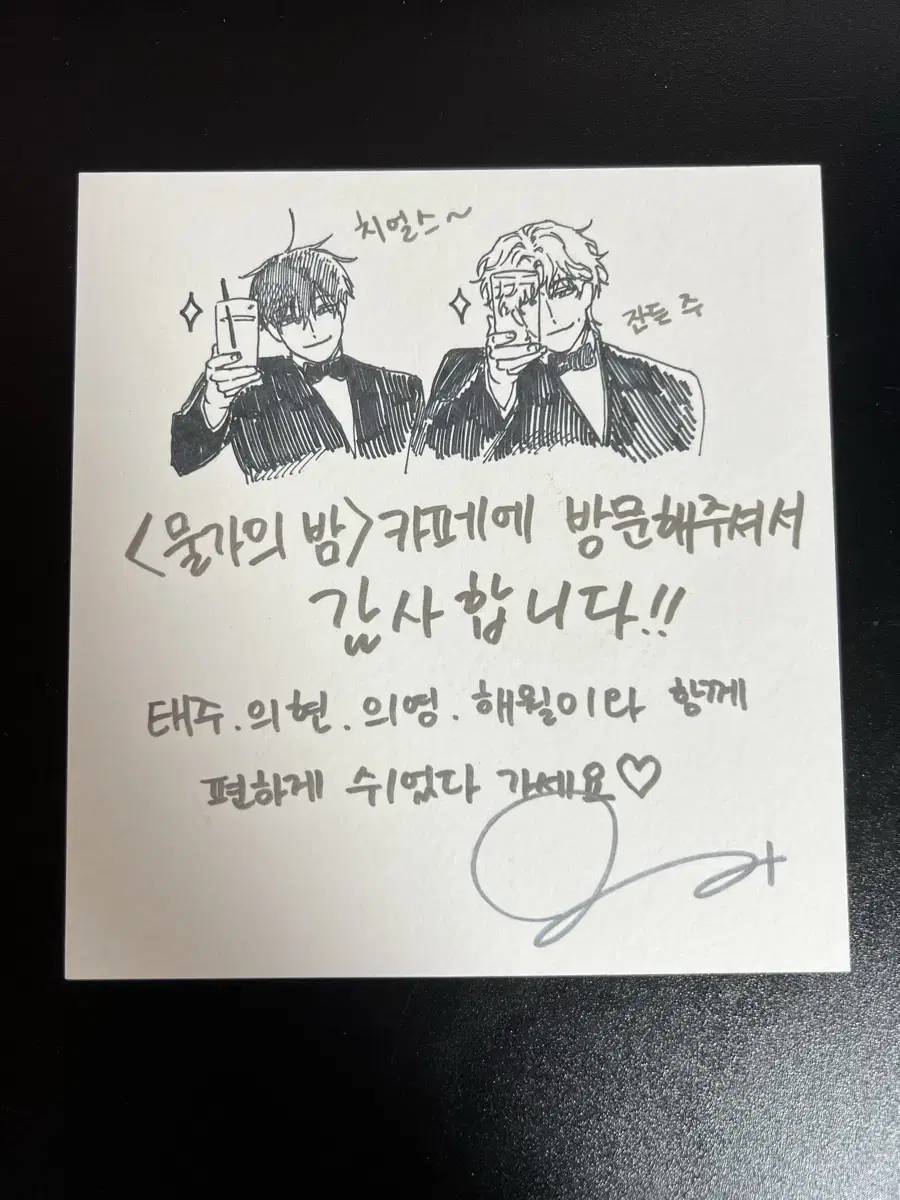 치얼스~
잔든 주
<물가의 밤> 카페에 방문해주셔서
감사합니다!!
태주.의현.의영.해월이랑 함께
편하게 쉬었다 가세요♡